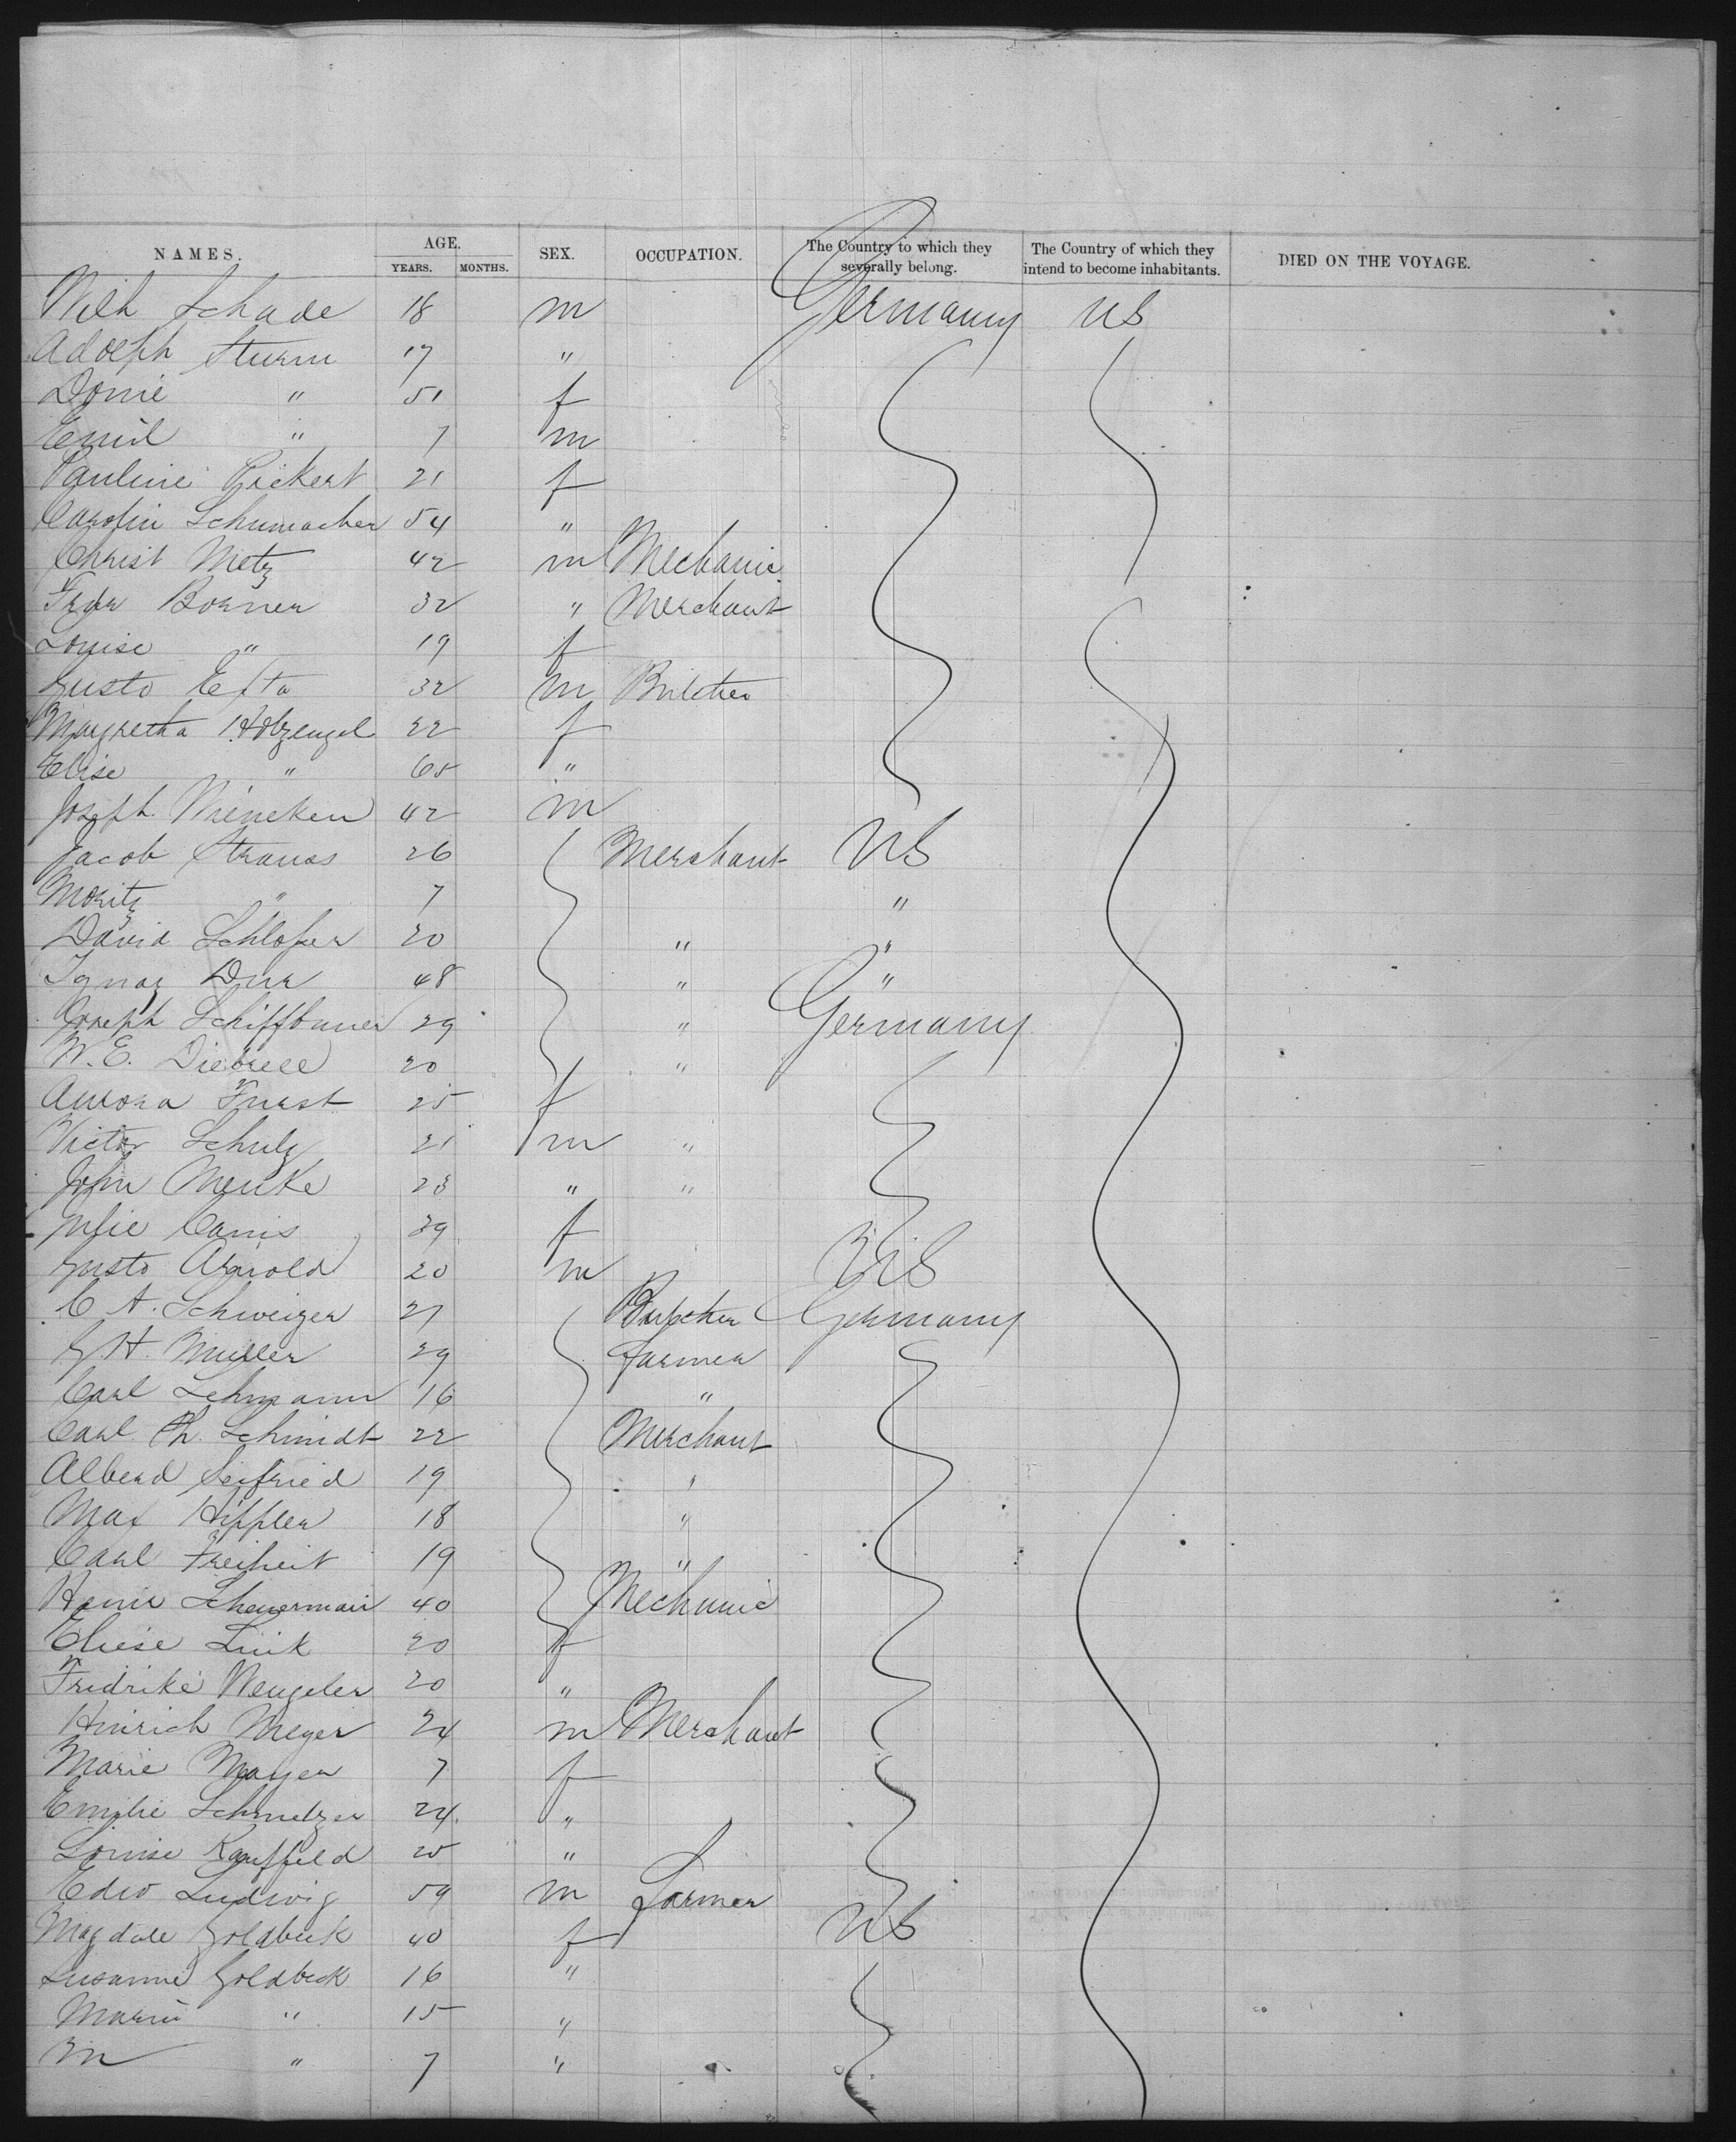 NAMES. AGE. SEX. OCCUPATION. The Country to which they severally belong. The Country of which they intend to become inhabitants. DIED ON THE VOYAGE.
YEARS. MONTHS.
Wilh Schade 18 m Germany US
Adolph Sturm 17 "
" 51 f
Emil " 7 m
Pauline Rickert 21 f
Carolin Schumacher 54 "
Christ Metz 42 m Mechanic
Fredr Borner 32 " Merchant
Louise " 19 f
Gusto 32 m Butcher
Magretha Holzengel 22 f
Elise " 65 "
Joseph Wieneken 42 m
Jacob Strauss 26 Merchant US
Moritz " 7 "
David Schloser 20 " "
Ignaz Durr 48 " "
Joseph Schiffbauer 29 " Germany
W. E. 20 "
Aurora Furst 25 f
Victor Schulz 21 m "
John Menke 23 " "
Julie Canis 39 f
Gusto Arnold 20 m US
C A. Schweizer 27 Butcher Germany
G H. Muller 29 Farmer
Carl Lehmann 16 "
Carl Ph. Schmidt 22 Merchant
Alberd Seifried 19 "
Max Hippler 18 "
Carl Freiheit 19 "
Scheuermann 40 Mechanic
Eliese Link 20 f
Fredrike Wengeler 20 "
Hinrich Meyer 24 m Merchant
Marie Mayer 7 f
Emilie Schmelzer 24 "
Louise Kauffeld 20 "
Edw Ludwig 59 m Farmer
Magdale Goldbeck 40 f US
Susanne Goldbeck 16 "
Marie " 15 "
M " 7 "